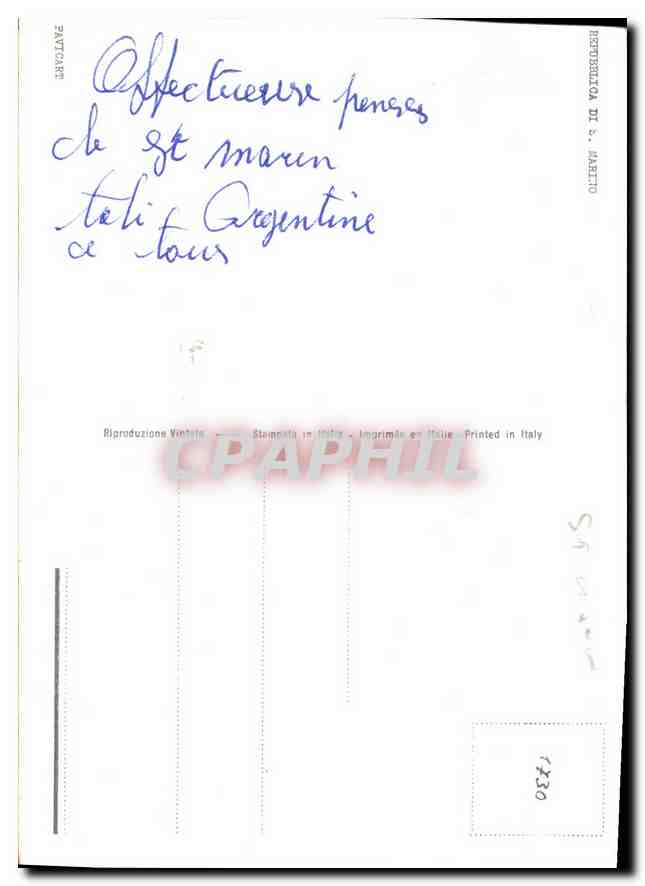 PAVICART
REPUBBLICA DI S. MARINO
Affectueuse penses
de St marin
Argentine
a tous
Riproduzione Vietata - Stampata in Italia - Imprimée en Italie - Printed in Italy
CPAPHIL
1730